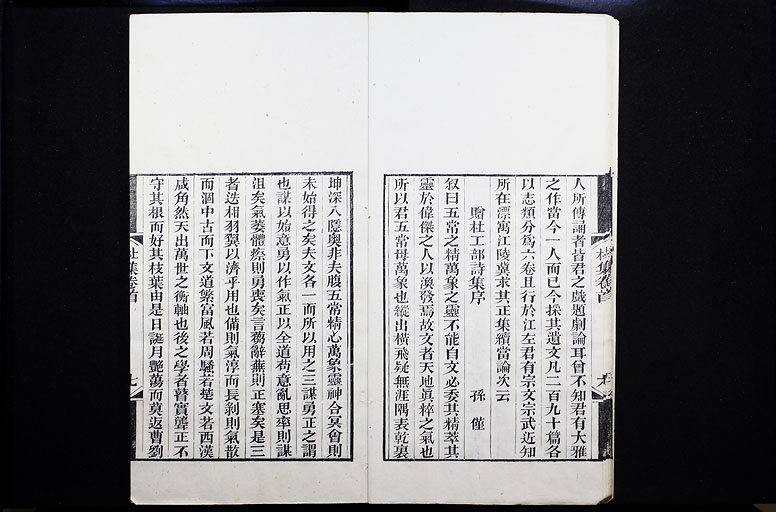 人所傳誦者皆君之戲題劇論耳曾不知君有大雅
之作當今一人而已今採其遺文凡二百九十篇各
以志類分爲六卷且行於江左君有宗文宗武近知
所在漂寓江陵冀求其正集續當論次云
贈杜工部詩集序
孫僅
叙曰五常之精萬象之靈不能自文必委其精萃其
靈於偉傑之人以渙發焉故文者天地眞粹之氣也
所以君五常母萬象也縱出橫飛疑無涯隅表乾裏
坤深入隱奧非夫腹五常精心萬象靈神合冥會則
未始得之矣夫文各一而所以用之三謀勇正之謂
也謀以始意勇以作氣正以全道苟意亂思率則謀
沮矣氣萎體瘵則勇喪矣言蒭辭蕪則正塞矣是三
者迭相羽翼以濟乎用也備則氣淳而長剝則氣散
而涸中古而下文道繁富風若周騷若楚文若西漢
咸角然天出萬世之衡軸也後之學者瞽實聾正不
守其根而好其枝葉由是日誕月艷蕩而莫返曹劉
杜集卷首
七